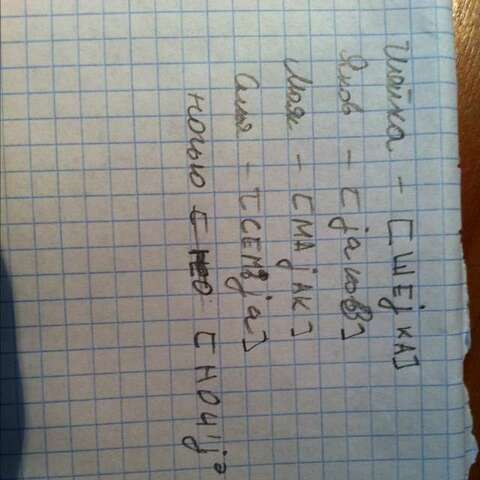 Шейка - [ШЕjКА]
Яков - [jаков]
Маяк - [МАjАК]
Семья - [СЕМ'jа]
ночью [НОЧ'jу